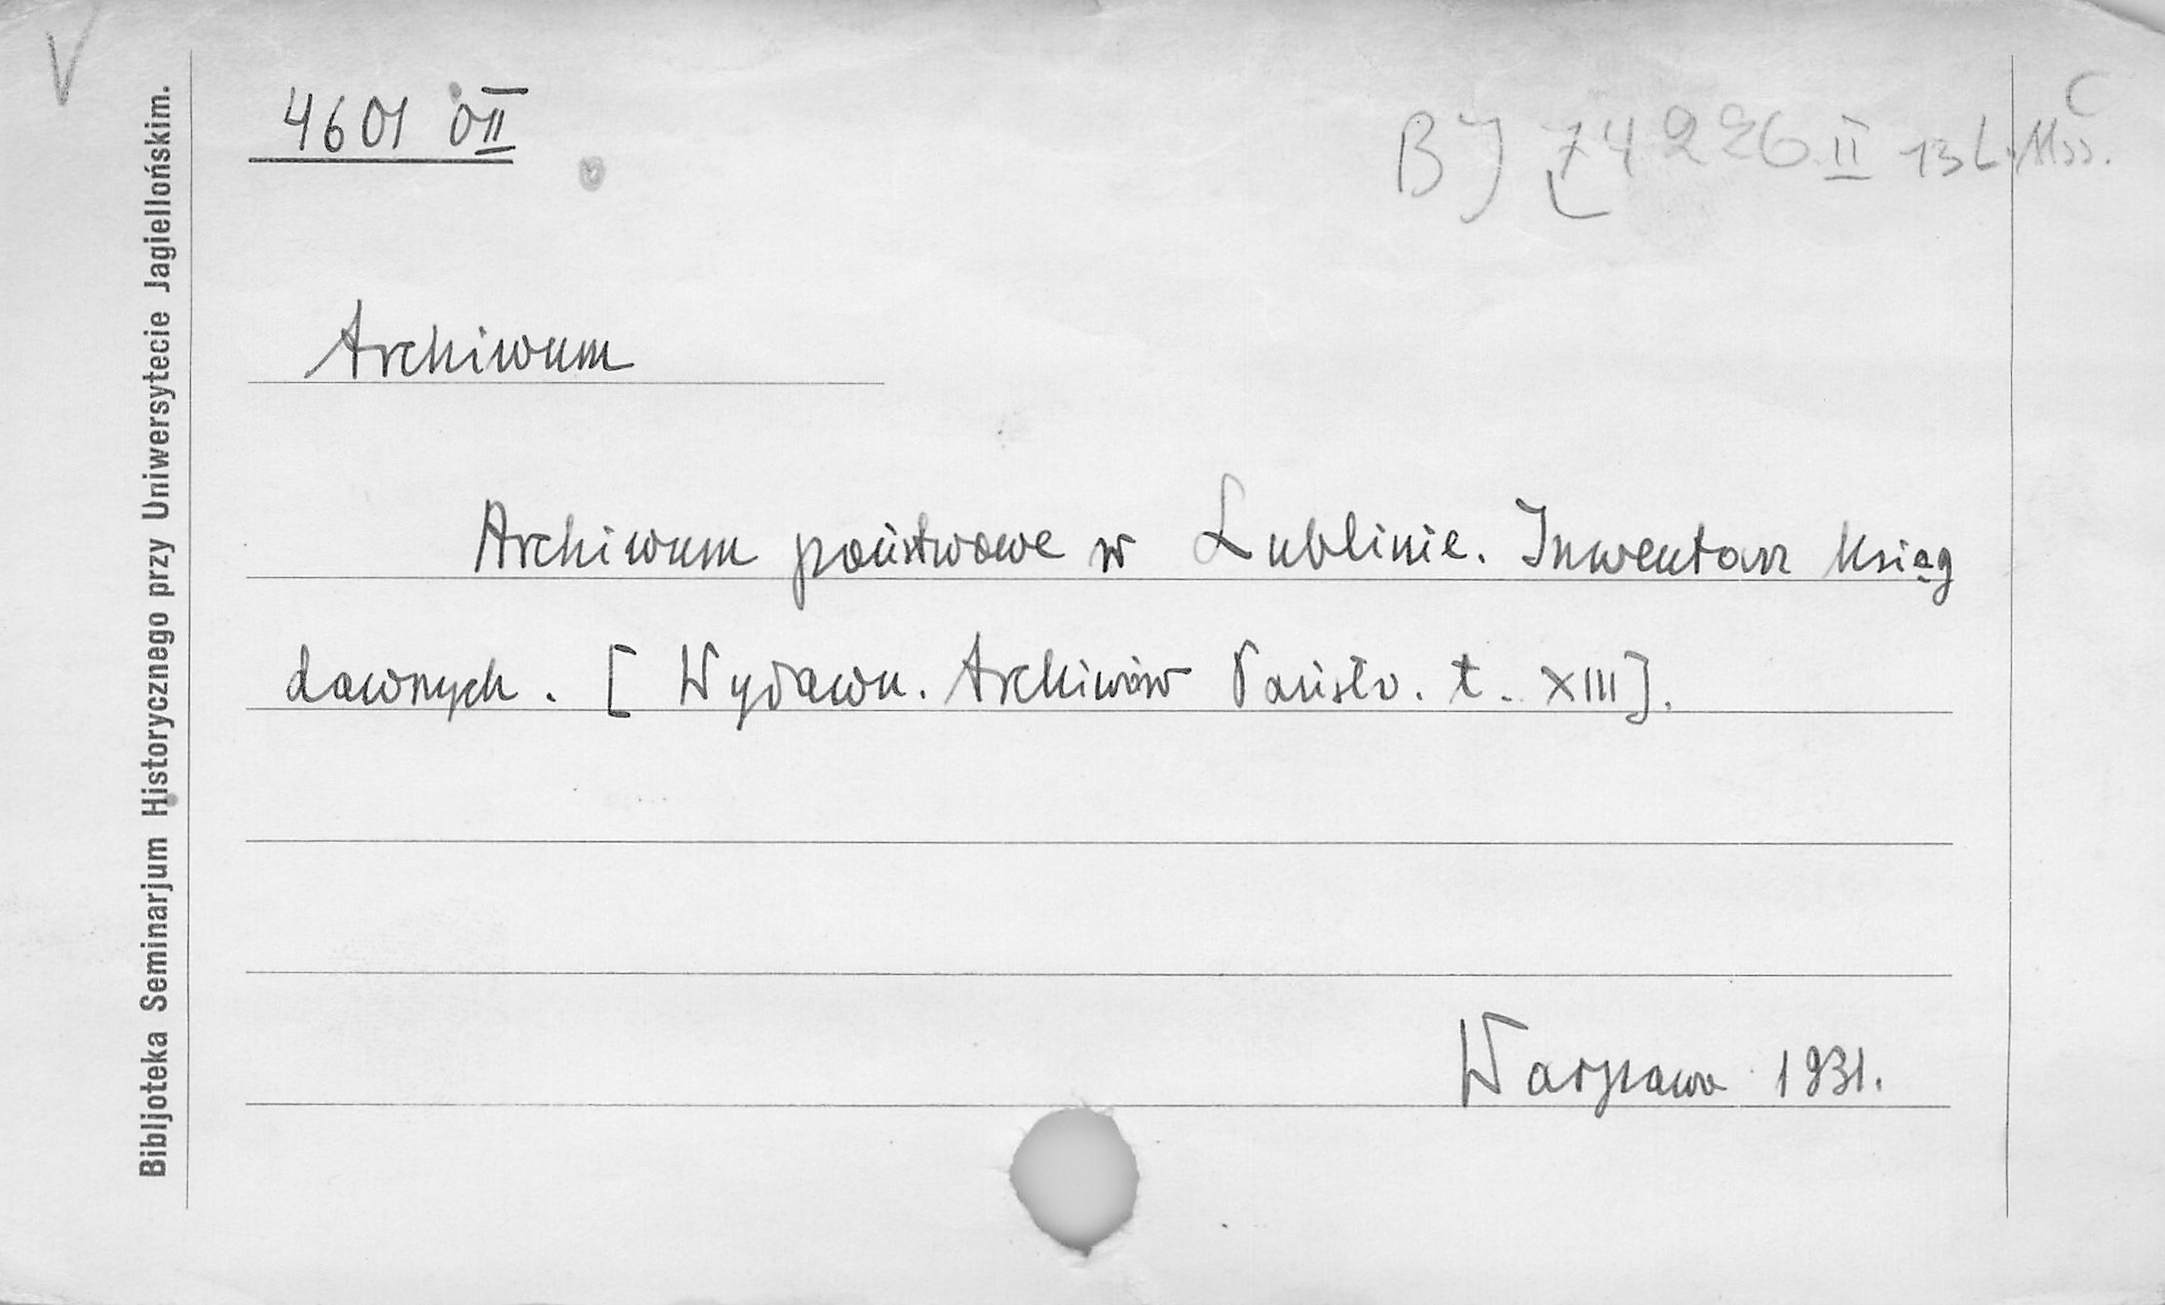 V
4601 OII
BJ 74226 II 13 L. Mss.
C
Archiwum
Archiwum państwowe w Lublinie. Inwentarz ksiąg
dawnych. [ Wydawn. Archiwów Państw. t. XIII].
Warszawa 1931.
Bibljoteka Seminarjum Historycznego przy Uniwersytecie Jagiellońskim.